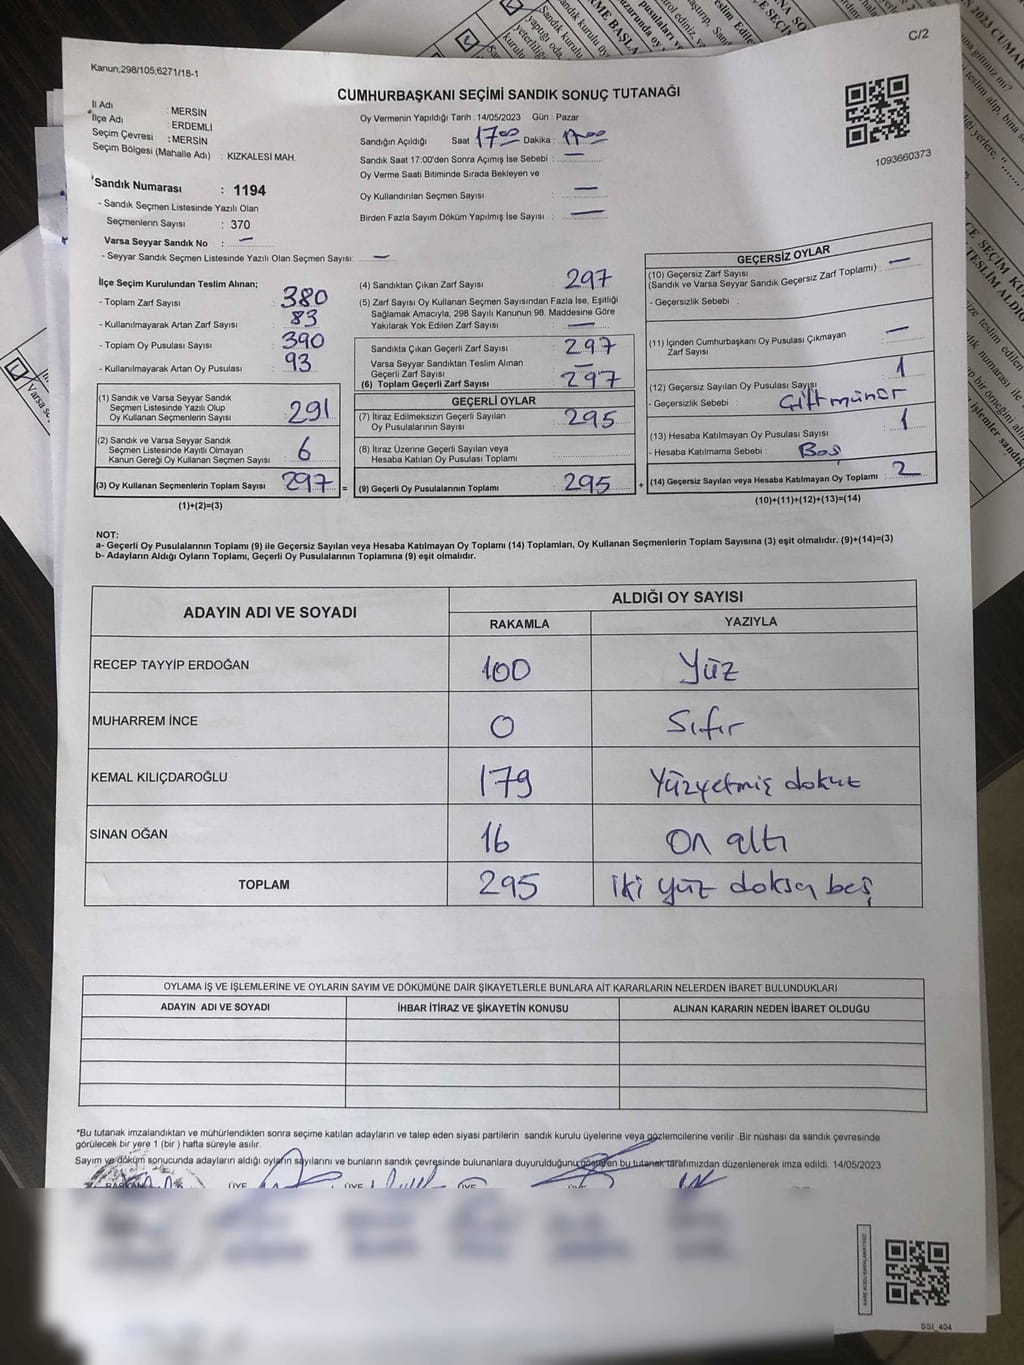 C/2
Kanun;298/105;6271/18-1
CUMHURBAŞKANI SEÇİMİ SANDIK SONUÇ TUTANAĞI
İl Adı : MERSİN
*İlçe Adı : ERDEMLİ
Seçim Çevresi : MERSİN
Seçim Bölgesi (Mahalle Adı) : KIZKALESİ MAH.
Oy Vermenin Yapıldığı Tarih : 14/05/2023 Gün : Pazar
Sandığın Açıldığı Saat 17⁰⁰ Dakika : 17.00
Sandık Saat 17:00'den Sonra Açımış İse Sebebi : —
Oy Verme Saati Bitiminde Sırada Bekleyen ve
Oy Kullandırılan Seçmen Sayısı : —
Birden Fazla Sayım Döküm Yapılmış İse Sayısı : —
1093660373
*Sandık Numarası : 1194
- Sandık Seçmen Listesinde Yazılı Olan
Seçmenlerin Sayısı : 370
Varsa Seyyar Sandık No : —
- Seyyar Sandık Seçmen Listesinde Yazılı Olan Seçmen Sayısı: —
İlçe Seçim Kurulundan Teslim Alınan;
- Toplam Zarf Sayısı : 380
- Kullanılmayarak Artan Zarf Sayısı : 83
- Toplam Oy Pusulası Sayısı : 390
- Kullanılmayarak Artan Oy Pusulası : 93
(1) Sandık ve Varsa Seyyar Sandık
Seçmen Listesinde Yazılı Olup
Oy Kullanan Seçmenlerin Sayısı : 291
(2) Sandık ve Varsa Seyyar Sandık
Seçmen Listesinde Kayıtlı Olmayan
Kanun Gereği Oy Kullanan Seçmen Sayısı : 6
(3) Oy Kullanan Seçmenlerin Toplam Sayısı : 297 =
(1)+(2)=(3)
(4) Sandıktan Çıkan Zarf Sayısı : 297
(5) Zarf Sayısı Oy Kullanan Seçmen Sayısından Fazla İse, Eşitliği
Sağlamak Amacıyla, 298 Sayılı Kanunun 98. Maddesine Göre
Yakılarak Yok Edilen Zarf Sayısı : —
Sandıkta Çıkan Geçerli Zarf Sayısı : 297
Varsa Seyyar Sandıktan Teslim Alınan
Geçerli Zarf Sayısı : —
(6) Toplam Geçerli Zarf Sayısı : 297
GEÇERLİ OYLAR
(7) İtiraz Edilmeksizin Geçerli Sayılan
Oy Pusulalarının Sayısı : 295
(8) İtiraz Üzerine Geçerli Sayılan veya
Hesaba Katılan Oy Pusulası Toplamı :
(9) Geçerli Oy Pusulalarının Toplamı : 295 +
GEÇERSİZ OYLAR
(10) Geçersiz Zarf Sayısı
(Sandık ve Varsa Seyyar Sandık Geçersiz Zarf Toplamı) : —
- Geçersizlik Sebebi :
(11) İçinden Cumhurbaşkanı Oy Pusulası Çıkmayan
Zarf Sayısı : —
(12) Geçersiz Sayılan Oy Pusulası Sayısı : 1
- Geçersizlik Sebebi : Çiftmühür
(13) Hesaba Katılmayan Oy Pusulası Sayısı : 1
- Hesaba Katılmama Sebebi : Boş
(14) Geçersiz Sayılan veya Hesaba Katılmayan Oy Toplamı : 2
(10)+(11)+(12)+(13)=(14)
NOT:
a- Geçerli Oy Pusulalarının Toplamı (9) ile Geçersiz Sayılan veya Hesaba Katılmayan Oy Toplamı (14) Toplamları, Oy Kullanan Seçmenlerin Toplam Sayısına (3) eşit olmalıdır. (9)+(14)=(3)
b- Adayların Aldığı Oyların Toplamı, Geçerli Oy Pusulalarının Toplamına (9) eşit olmalıdır.
ADAYIN ADI VE SOYADI
ALDIĞI OY SAYISI
RAKAMLA YAZIYLA
RECEP TAYYİP ERDOĞAN 100 Yüz
MUHARREM İNCE 0 Sıfır
KEMAL KILIÇDAROĞLU 179 Yüzyetmiş dokuz
SİNAN OĞAN 16 On altı
TOPLAM 295 iki yüz doksan beş
OYLAMA İŞ VE İŞLEMLERİNE VE OYLARIN SAYIM VE DÖKÜMÜNE DAİR ŞİKAYETLERLE BUNLARA AİT KARARLARIN NELERDEN İBARET BULUNDUKLARI
ADAYIN ADI VE SOYADI İHBAR İTİRAZ VE ŞİKAYETİN KONUSU ALINAN KARARIN NEDEN İBARET OLDUĞU
*Bu tutanak imzalandıktan ve mühürlendikten sonra seçime katılan adayların ve talep eden siyasi partilerin sandık kurulu üyelerine veya gözlemcilerine verilir .Bir nüshası da sandık çevresinde
görülecek bir yere 1 (bir ) hafta süreyle asılır.
Sayım ve döküm sonucunda adayların aldığı oyların sayılarını ve bunların sandık çevresinde bulunanlara duyurulduğunu gösteren bu tutanak tarafımızdan düzenlenerek imza edildi. 14/05/2023
BAŞKAN ÜYE ÜYE ÜYE ÜYE
SSI_404